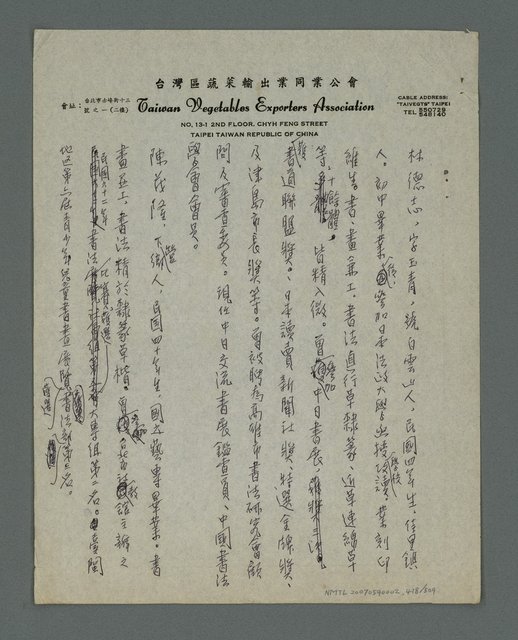 台灣區蔬菜輸出業同業公會
會址：台北市赤峰街十三號之一（二樓）
Taiwan Vegetables Exporters Association
NO. 13-1 2ND FLOOR, CHYH FENG STREET
TAIPEI TAIWAN REPUBLIC OF CHINA
CABLE ADDRESS:
"TAIVEGTS" TAIPEI
TEL 550729
548140
林德志，字玉青，號白雲山人，民國四年生，佳里鎮
人。初中畢業後參加日本法政大學函授攻讀畢業刻印
維生。書、畫兼工。書法真行草隸篆、近草連綿草
等十餘體，皆精入微。曾參加中日書展，獲
書道聯盟獎、日本讀賣新聞社獎、特選金牌獎、
及津島市長獎等。曾被聘為高雄市書法研究會顧
問及審查委員。現任中日交流書展鑑審員、中國書法
學會會員。
陳茂隆，下營人，民國四十年生，國立藝專畢業。書
畫並工，書法精於隸篆草楷。曾參加台北
民國六十二年書法比賽大專組第二名。臺閩
地區第六屆青少年兒童書畫展覽書法部第三名。
NMTL 20070590002 418/504